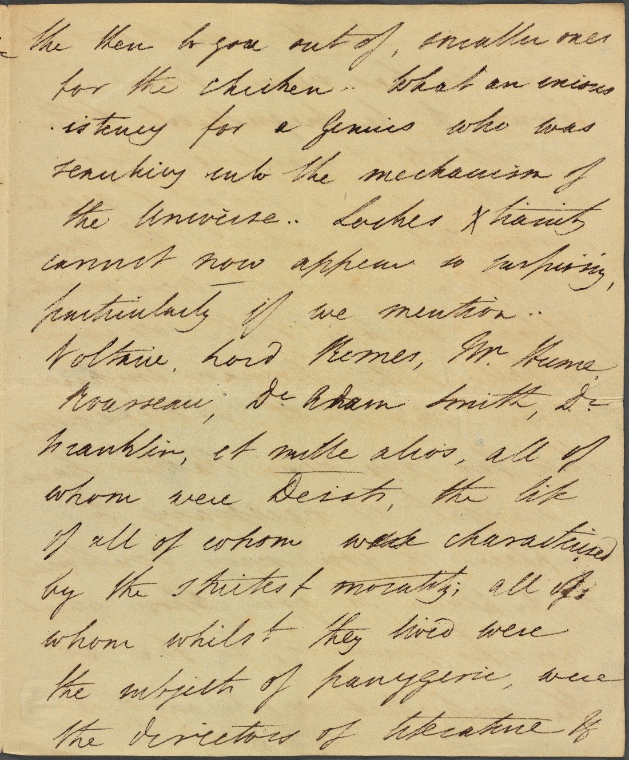 the Hen to go in out of, smaller ones
for the chicken.. What an incons
-istency for a Genius who was
searching into the mechanism of
the Universe.. Lockes Xtianity
cannot now appear so surprising,
particularly if we mention..
Voltaire, Lord Kames, Mr. Hume
Rousseau, Dr Adam Smith, Dr
Franklin, et mille alios, all of
whom were Deists, the life
of all of whom was characterised
by the strictest morality; all of
whom whilst they lived were
the subjects of panygeric, were
the directors of literature &